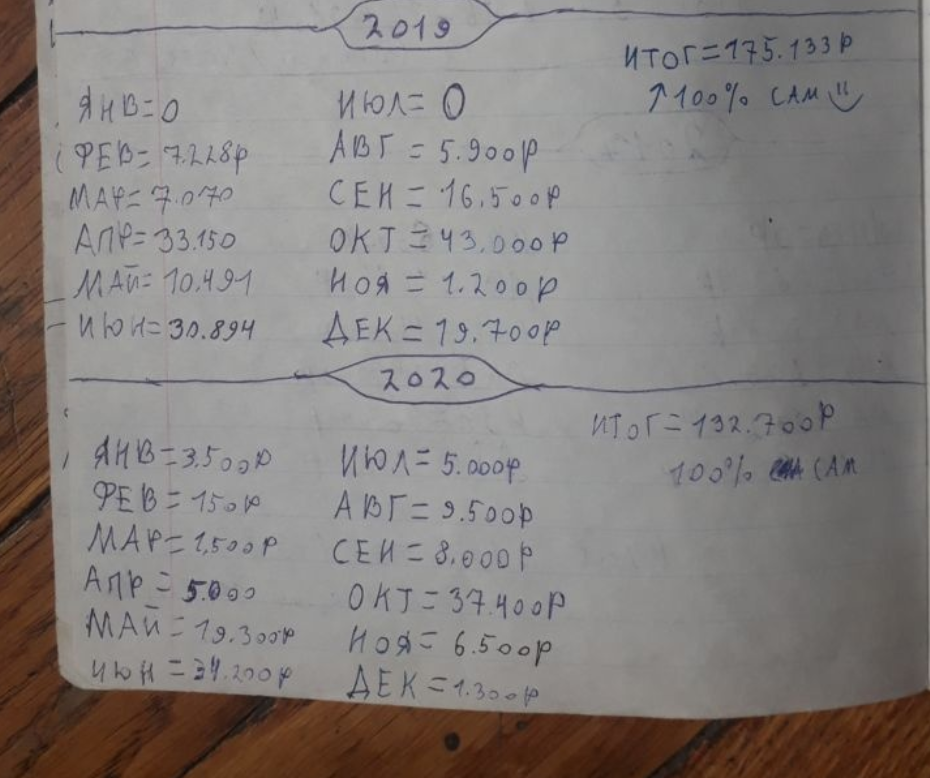 2019
ИТОГ=175.133р
↑100% САМ
ЯНВ=0
ФЕВ=7.228р
МАР=7.070
АПР=33.150
МАЙ=10.491
ИЮН=30.894
ИЮЛ=0
АВГ=5.900р
СЕН=16.500р
ОКТ=43.000р
НОЯ=1.200р
ДЕК=19.700р
2020
ИТОГ=132.700р
100% САМ
ЯНВ=3.500р
ФЕВ=150р
МАР=1.500р
АПР=5.000
МАЙ=19.300р
ИЮН=34.200р
ИЮЛ=5.000р
АВГ=9.500р
СЕН=8.000р
ОКТ=37.400р
НОЯ=6.500р
ДЕК=1.300р